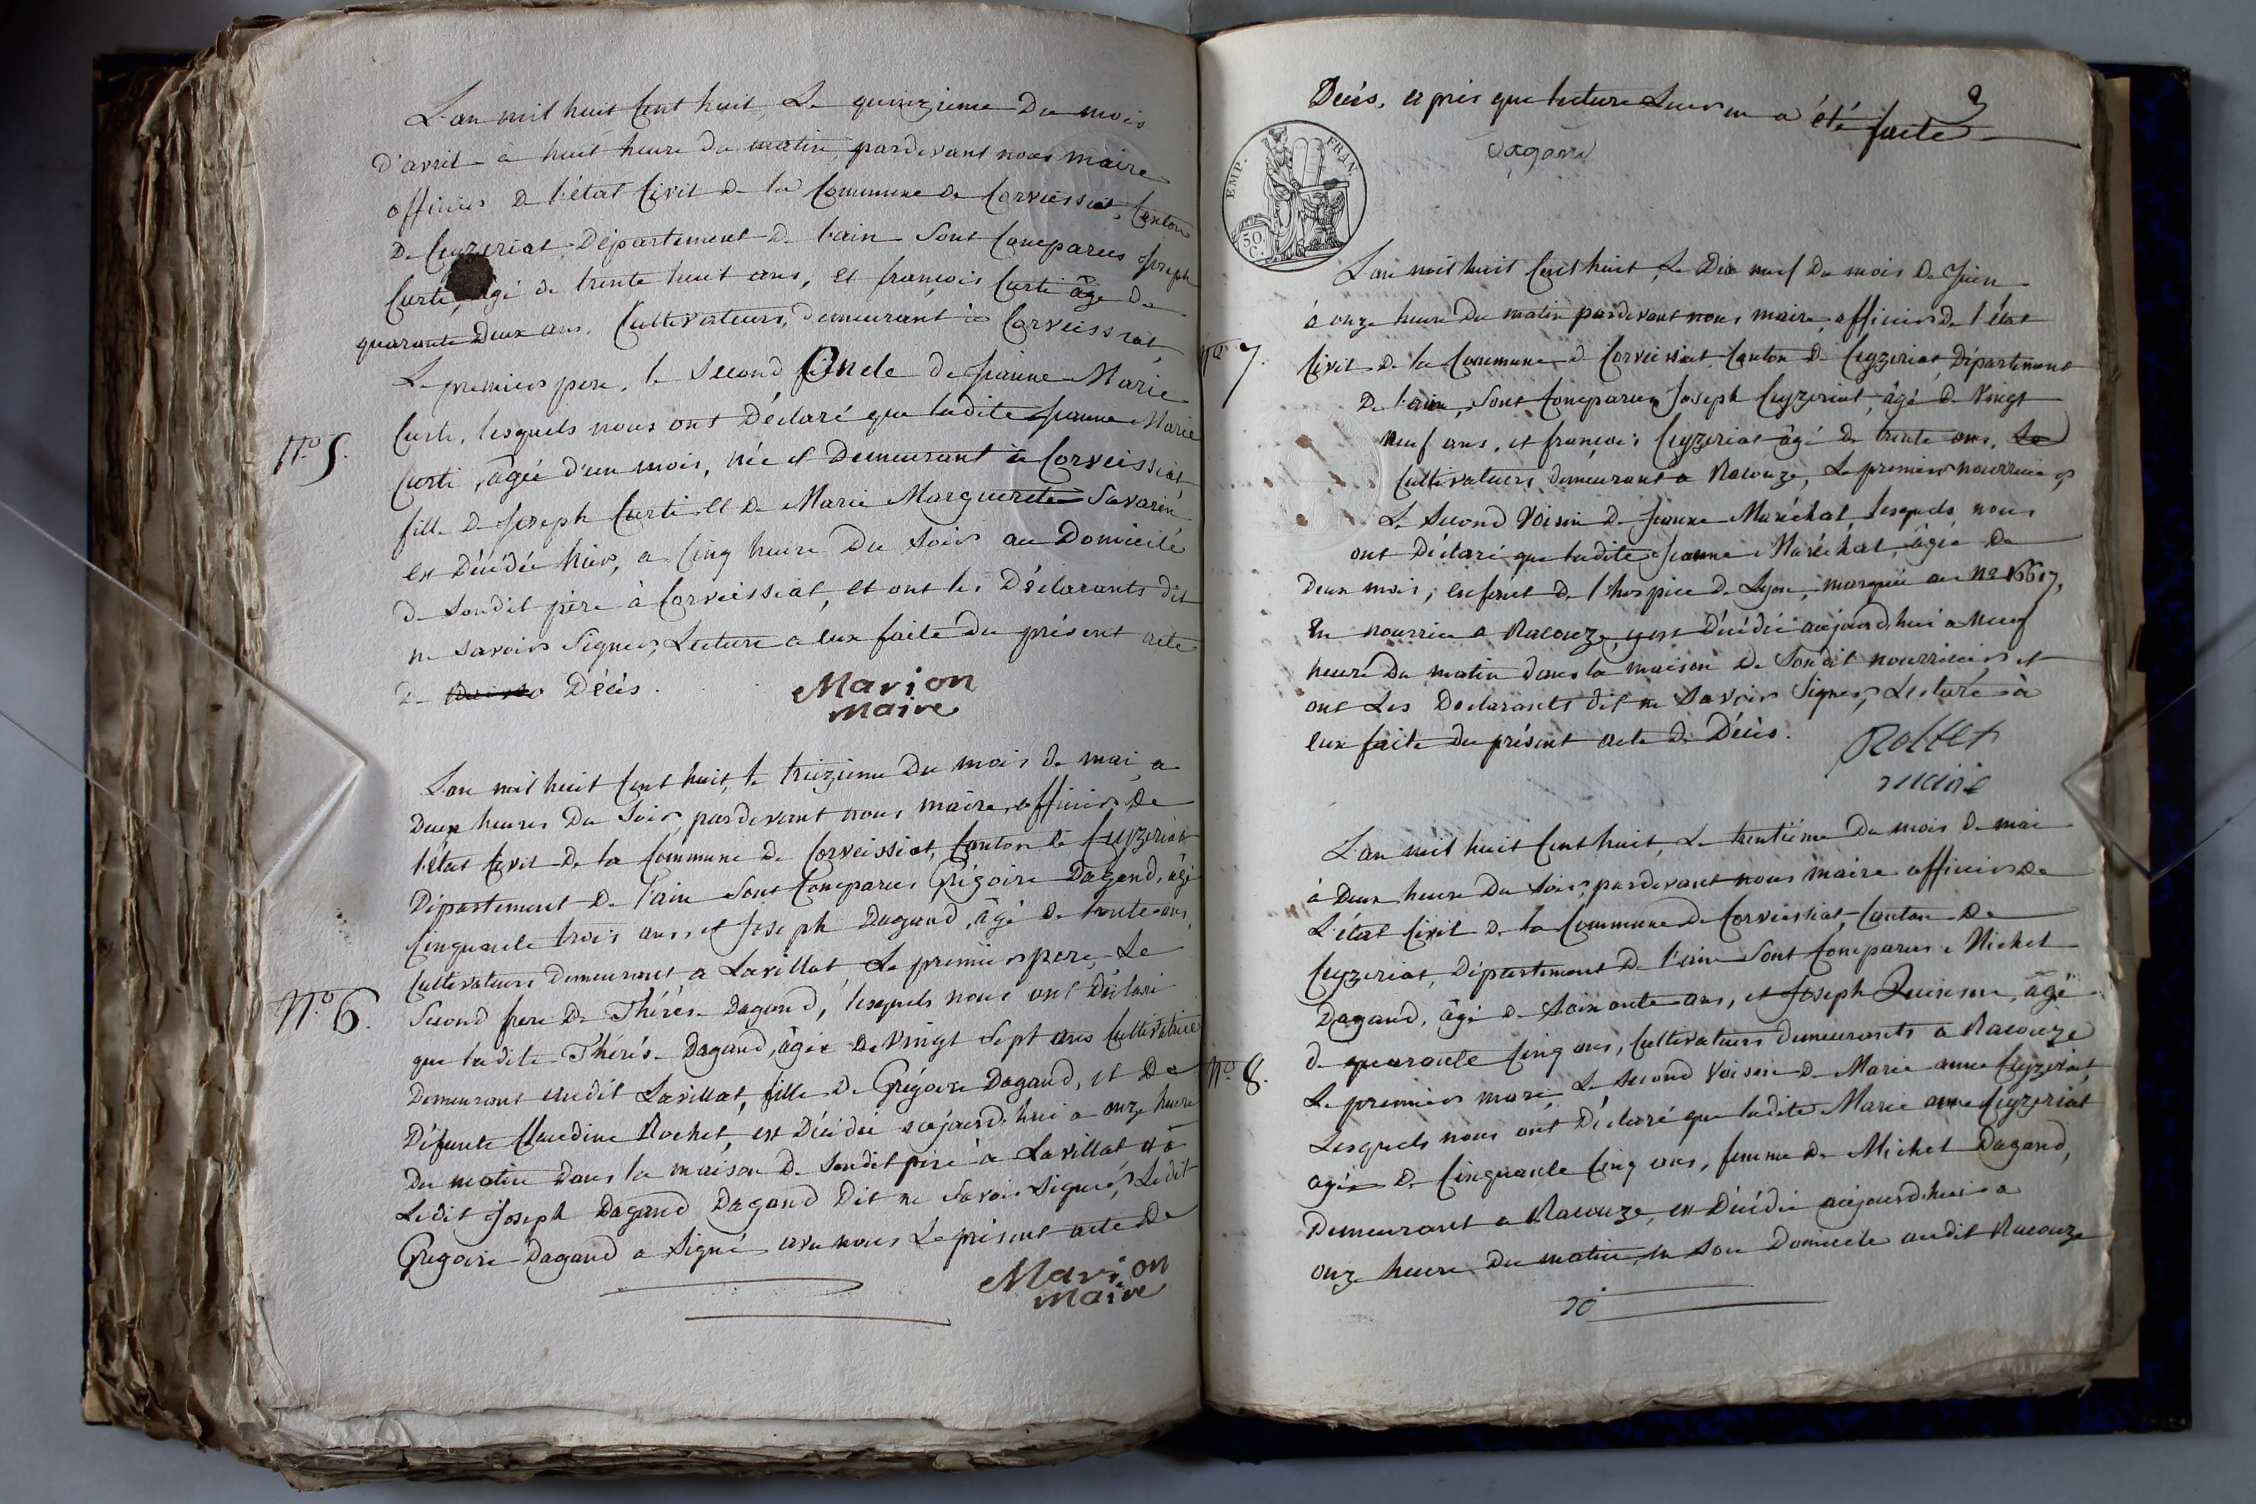 L'an mil huit cent huit, Le quinzieme Du mois
D'avril à huit heure du matin, pardevant nous maire
officier De l'état Civil De la Commune De Corveissiat, Canton
De Ceyzeriat, Département De l'ain sont Comparus Joseph
Curti, âgé de trente huit ans, et françois Curti âgé De
quarante Deux ans, Cultivateurs, demeurant à Corveissiat,
Le premier pere, le Second Oncle De Jeanne Marie
Curti, lesquels nous ont Déclaré que ladite Jeanne Marie
Nº 5.
Curti, âgée d'un mois, née et Demeurant à Corveissiat
fille De Joseph Curti et De Marie Marguerite Savarin
est Décédée hier, a Cinq heure Du Soir au Domicile
de Sondit père à Corveissiat, et ont les Déclarants dit
ne savoir Signer, Lecture a eux faite Du présent acte
De Décès.
Marion
maire
L'an mil huit Cent huit, le treizieme Du mois de mai, a
Deux heures Du Soir, pardevant nous maire, officier De
l'état Civil De la Commune De Corveissiat, Canton De Ceyzeriat
Département De l'ain Sont Comparus Grégoire Dagand, âgé
Cinquante trois ans, et Joseph Dagand, âgé De trente ans,
Cultivateurs Demeurant a Lavillat, Le premier pere, Le
Nº 6.
Second frere De Thérèse Dagand, lesquels nous ont Déclaré
que ladite Thérèse Dagand, âgée De Vingt Sept ans Cultivatrice
Demeurant audit Lavillat, fille De Grégoire Dagand, et De
Défunte Claudine Rochet, est Décédée aujourd'hui a onze heure
Du matin dans la maison De Sondit père à Lavillat et a
Ledit Joseph Dagand Dagand Dit ne Savoir Signer, Ledit
Grégoire Dagand a Signé avec nous Le présent acte De
Marion
maire
3
Décès, après que lecture Leur en a été faite
Dagand
EMP. FRAN.
50 C.
L'an mil huit Cent huit, Le Dix neuf Du mois De Juin
à onze heure Du matin pardevant nous maire, officier De l'état
Nº 7.
Civil De la Commune De Corveissiat Canton De Ceyzeriat, Département
De l'ain, Sont Comparus Joseph Ceyzeriat, âgé De Vingt
Neuf ans, et françois Ceyzeriat âgé De trente ans,
Cultivateurs, demeurant a Racouze, Le premier nourricier
Le Second Voisin De Jeanne Maréchal, Lesquels nous
ont Déclaré que ladite Jeanne Maréchal, âgée De
Deux mois, enfant De l'hospice De Lyon, marquée au Nº 16617,
En nourrice a Racouze, y est Décédée aujourd'hui a neuf
heure Du matin dans la maison De Sondit nourricier et
ont Les Declarants dit ne Savoir Signer, Lecture à
eux faite du présent acte De Décès.
Rollet
maire
L'an mil huit Cent huit, Le trentième Du mois De mai
à Deux heure Du Soir, pardevant nous maire officier De
L'état Civil De la Commune De Corveissiat, Canton De
Ceyzeriat, Département De l'ain Sont Comparus Michel
Dagand, âgé De Soixante ans, et Joseph âgé
De quarante Cinq ans, Cultivateurs Demeurants a Racouze
Nº 8.
Le premier mari, Le Second Voisin De Marie anne Ceyzeriat,
Lesquels nous ont Déclaré que ladite Marie anne Ceyzeriat
agée De Cinquante Cinq ans, femme De Michel Dagand,
Demeurant a Racouze, est Décédée aujourd'hui a
onze heure Du matin, en Son Domicile audit Racouze